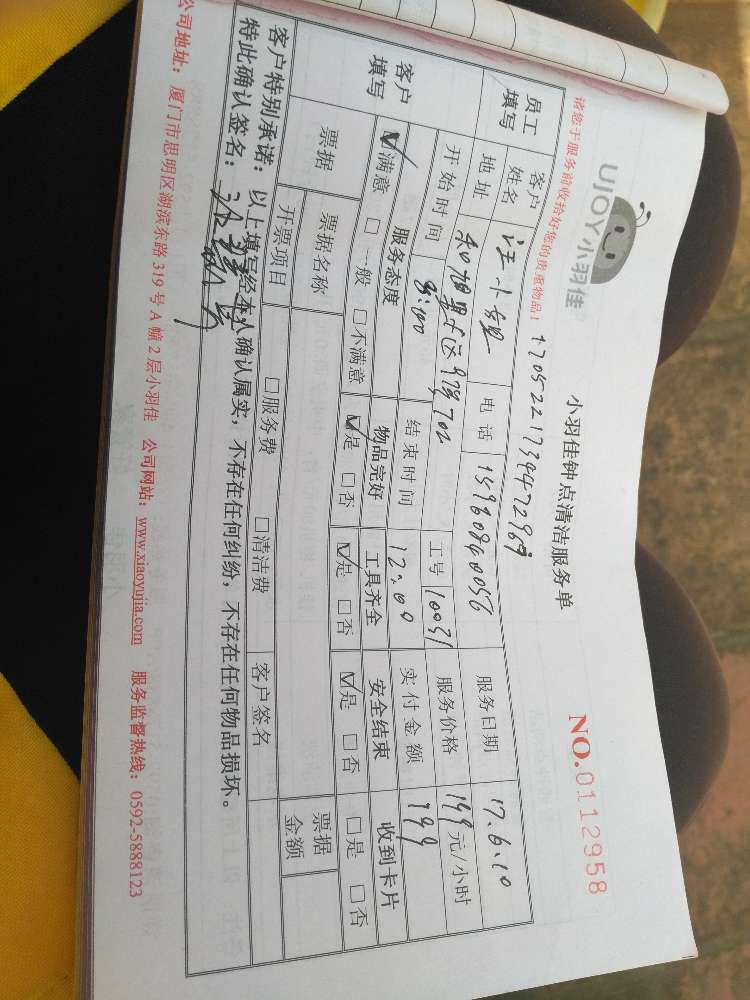 UJOY小羽佳
小羽佳钟点清洁服务单
NO.0112958
请您于服务前收拾好您的贵重物品！
1705221739472969
员工填写 客户姓名 电话 15960840056 服务日期 17.6.10
地址 702 工号 10031 服务价格 199 元/小时
开始时间 9:00 结束时间 12:00 实付金额 199
客户填写 服务态度 物品完好 工具齐全 安全结束 收到卡片
☑满意 □一般 □不满意 ☑是 □否 ☑是 □否 ☑是 □否 □是 □否
票据 票据名称 票据金额
开票项目 □服务费 □清洁费 客户签名
客户特别承诺：以上填写经本人确认属实，不存在任何纠纷，不存在任何物品损坏。
特此确认签名：
公司地址：厦门市思明区湖滨东路319号A幢2层小羽佳 公司网站：www.xiaoyujia.com 服务监督热线：0592-5888123